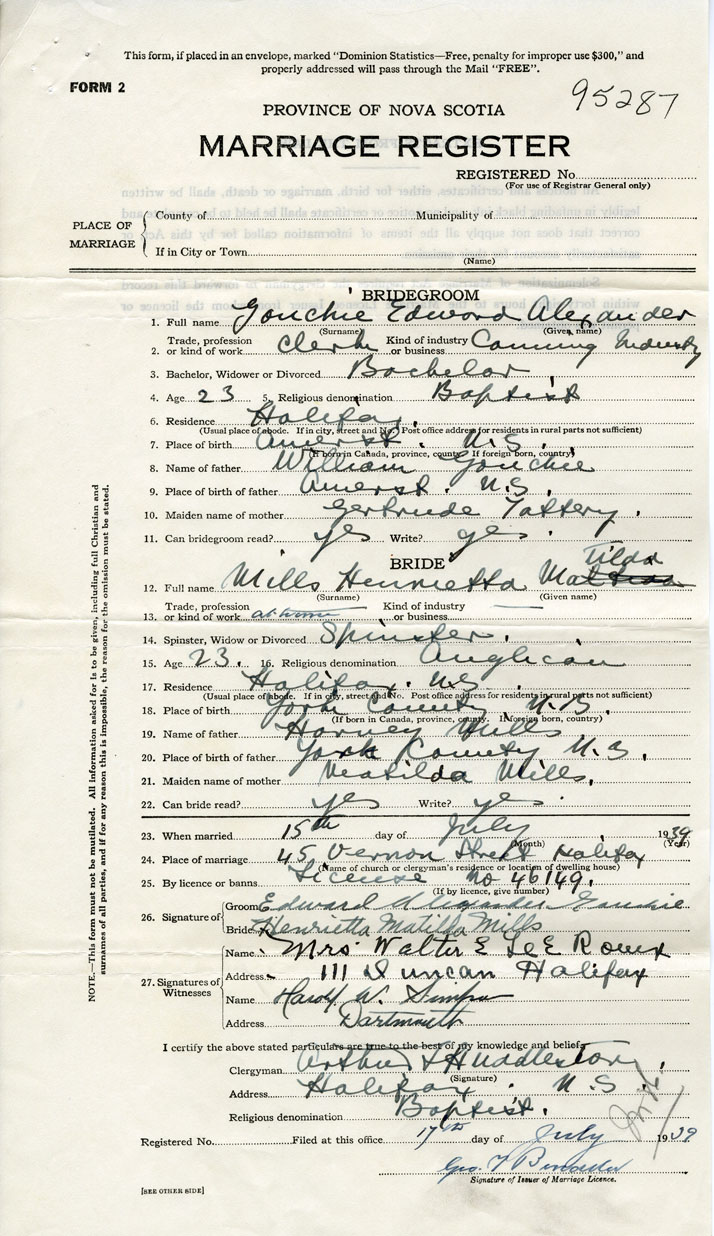 This form, if placed in an envelope, marked "Dominion Statistics—Free, penalty for improper use $300," and
properly addressed will pass through the Mail "FREE".
FORM 2
95287
PROVINCE OF NOVA SCOTIA
MARRIAGE REGISTER
REGISTERED No.
(For use of Registrar General only)
PLACE OF MARRIAGE
County of Municipality of
If in City or Town
(Name)
BRIDEGROOM
1. Full name Gouchie Edward Alexander
(Surname) (Given name)
2. Trade, profession or kind of work Clerk Kind of industry or business Canning Industry
3. Bachelor, Widower or Divorced Bachelor
4. Age 23 5. Religious denomination Baptist
6. Residence Halifax
(Usual place of abode. If in city, street and No. Post office address for residents in rural parts not sufficient)
7. Place of birth Amerst. N.S.
(If born in Canada, province, county. If foreign born, country)
8. Name of father William Gouchie
9. Place of birth of father Amerst. N.S.
10. Maiden name of mother Gertrude
11. Can bridegroom read? yes Write? yes.
BRIDE
12. Full name Mills Henrietta Matilda
(Surname) (Given name)
13. Trade, profession or kind of work at home Kind of industry or business —
14. Spinster, Widow or Divorced Spinster.
15. Age 23. 16. Religious denomination Anglican
17. Residence Halifax. N.S.
(Usual place of abode. If in city, street and No. Post office address for residents in rural parts not sufficient)
18. Place of birth York County N.B.
(If born in Canada, province, county. If foreign born, country)
19. Name of father Harvey Mills
20. Place of birth of father York County N.B.
21. Maiden name of mother Matilda Mills.
22. Can bride read? yes Write? yes.
23. When married 15th day of July 1939
(Month) (Year)
24. Place of marriage 45 Vernon Street Halifax
(Name of church or clergyman's residence or location of dwelling house)
25. By licence or banns License No 46149.
(If by licence, give number)
26. Signature of
Groom Edward Alexander Gouchie
Bride Henrietta Matilda Mills
27. Signatures of Witnesses
Name Mrs Walter E Le E Roux
Address 111 Duncan Halifax
Name W. Simpson
Address Dartmouth
I certify the above stated particulars are true to the best of my knowledge and belief.
Clergyman Arthur Huddleston
(Signature)
Address Halifax. N.S.
Religious denomination Baptist.
Registered No. Filed at this office 17th day of July 1939
Geo.
Signature of Issuer of Marriage Licence.
[SEE OTHER SIDE]
NOTE.—This form must not be mutilated. All information asked for is to be given, including full Christian and
surnames of all parties, and if for any reason this is impossible, the reason for the omission must be stated.